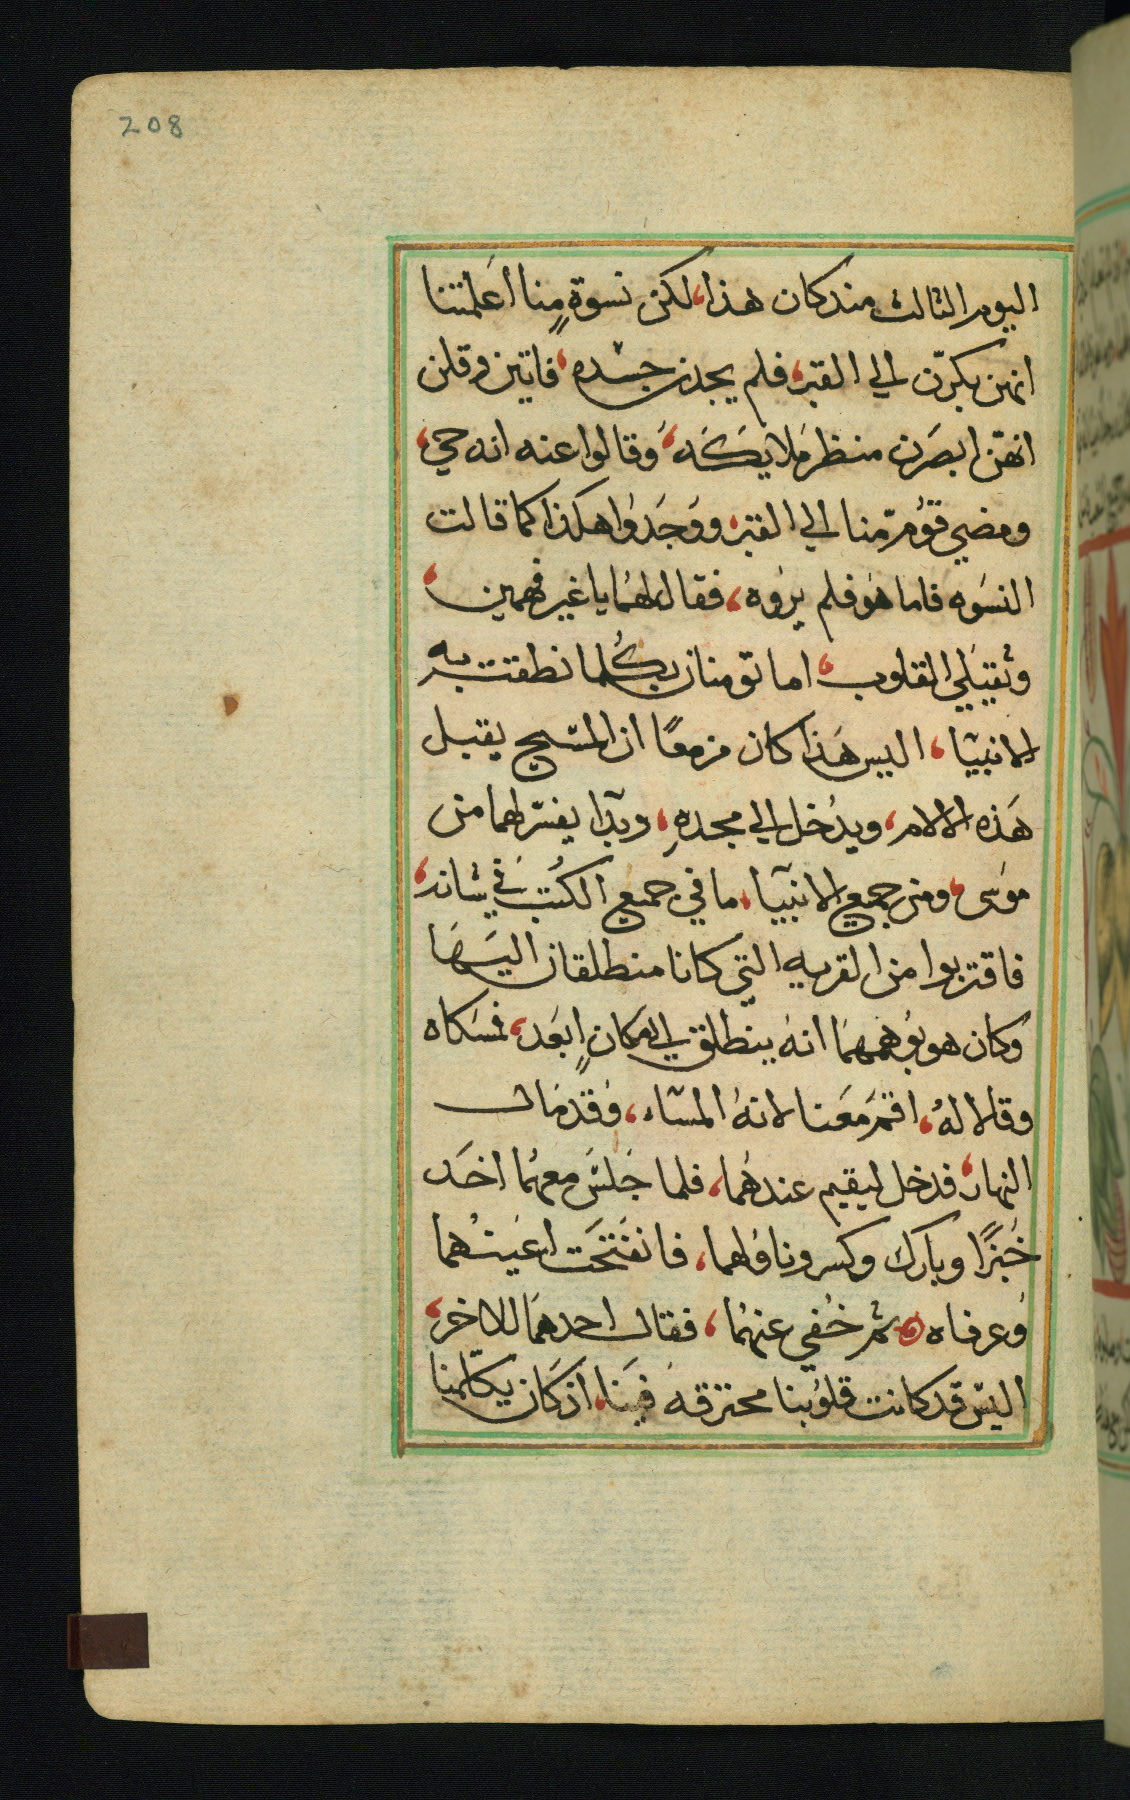 208
اليوم الثالث مند كان هذا، لكن نسوة منا اعلمتنا
انهن بكرّن الي القبر، فلم يجدن جسده، فاتين وقلن
انهنّ ابصرن منظر ملايكه، وقالوا عنه انه حي،
ومضي قوم منّا الي القبر، ووجدوا هكذا كما قالت
النسوه فاما هو فلم يروه، فقال لهما يا غير فهمين،
وثقيلي القلوب، اما تومنان بكلما نطقت به
الانبيا، اليس هذا كان مزمعًا ان المسيح يقبل
هذه الالام، ويدخل الي مجدهِ، وبدا يفسّر لهما من
موسى، ومن جميع الانبيا، ما في جميع الكتب في شانه،
فاقتربوا من القريه التي كانا منطلقان اليها
وكان هو يوهمهما انه ينطلق الي مكانٍ ابعد، فمسكاه
وقالا له، اقم معنا لانه المسآء، وقد مال
النهار، فدخل ليقيم عندهما، فلما جلس معهما اخد
خبزًا وبارك وكسر وناولهما، فانفتحت اعينهما
وعرفاه ثم خفي عنهما، فقال احدهما للاخر،
اليس قد كانت قلوبنا محترقه فينا، اذ كان يكلمنا